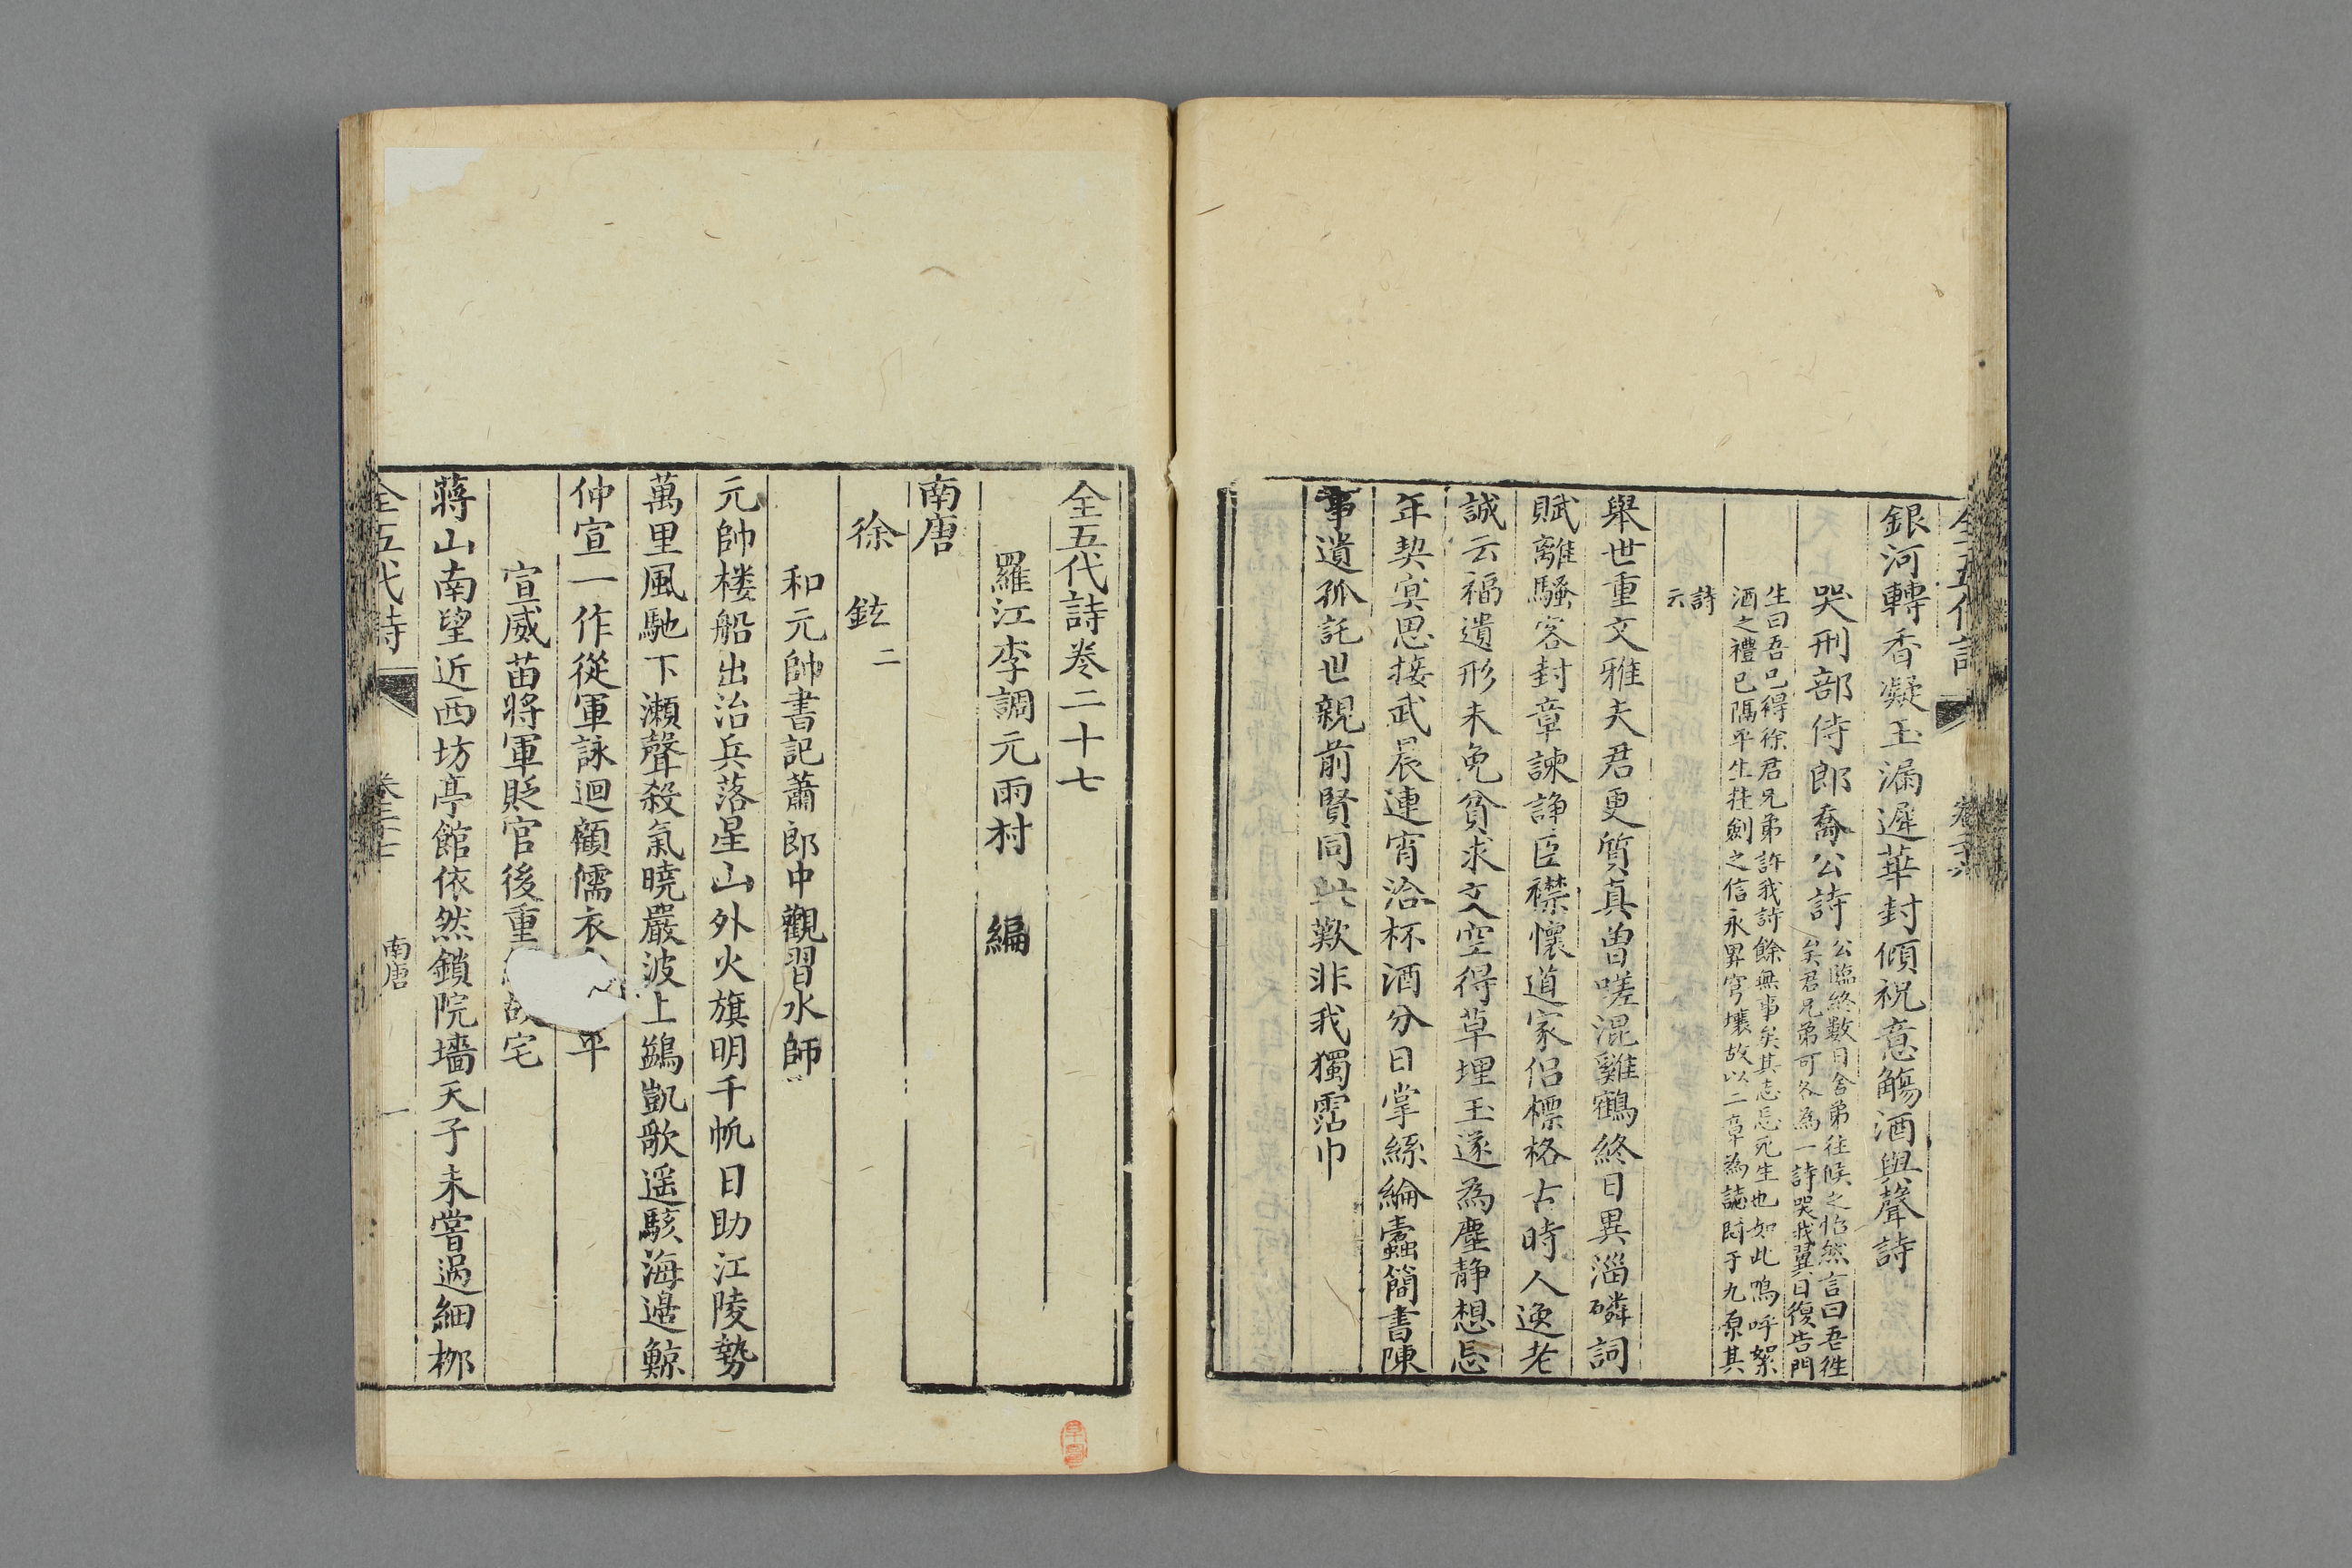 全五代詩
卷二十六
銀河轉香凝玉漏遲華封傾祝意觴酒與聲詩
哭刑部侍郎喬公詩
公臨終數日舍弟往候之怡然言曰吾徃
矣君兄弟可各為一詩哭我翼日復告門
生曰吾已得徐君兄弟許我詩餘無事矣其志忘死生也如此嗚呼絮
酒之禮已隅平生挂劍之信永畀穹壤故以二章為誌閟于九原其
詩
云
舉世重文雅夫君更質真曽嗟混雞鶴終日異淄磷詞
賦離騷客封章諫諍臣襟懷道家侣標格古時人逸老
誠云福遺形未免貧求文空得草埋玉遂為塵静想忘
年契寞思接武晨連宵洽杯酒分日掌絲綸蠹簡書陳
事遺孤託世親前賢同此歎非我獨霑巾
全五代詩卷二十七
羅江李調元雨村 編
南唐
徐鉉二
和元帥書記蕭郎中觀習水師
元帥楼船出治兵落星山外火旗明千帆日助江陵勢
萬里風馳下瀬聲殺氣曉嚴波上鷁凱歌遥駭海邉鯨
仲宣一作從軍詠迴顧儒衣平
宣威苗將軍貶官後重宅
蔣山南望近西坊亭館依然鎖院墻天子未嘗過細栁
全五代詩
卷二十七
南唐
一